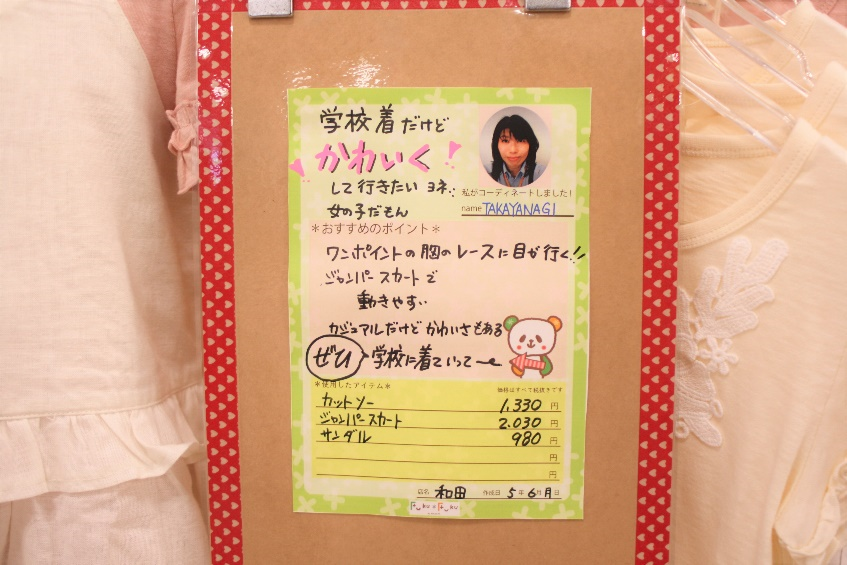 学校着だけど
かわいく!
して行きたいヨネ
私がコーディネートしました!
女の子だもん
name TAKAYANAGI
*おすすめのポイント*
ワンポイントの胸のレースに目が行く!!
ジャンパースカートで
動きやすい
カジュアルだけどかわいさもある
ぜひ 学校に着ていって〜
*使用したアイテム*
価格はすべて税抜きです
カットソー 1,330 円
ジャンパースカート 2,030 円
サンダル 980 円
円
円
店名 和田 作成日 5年6月 日